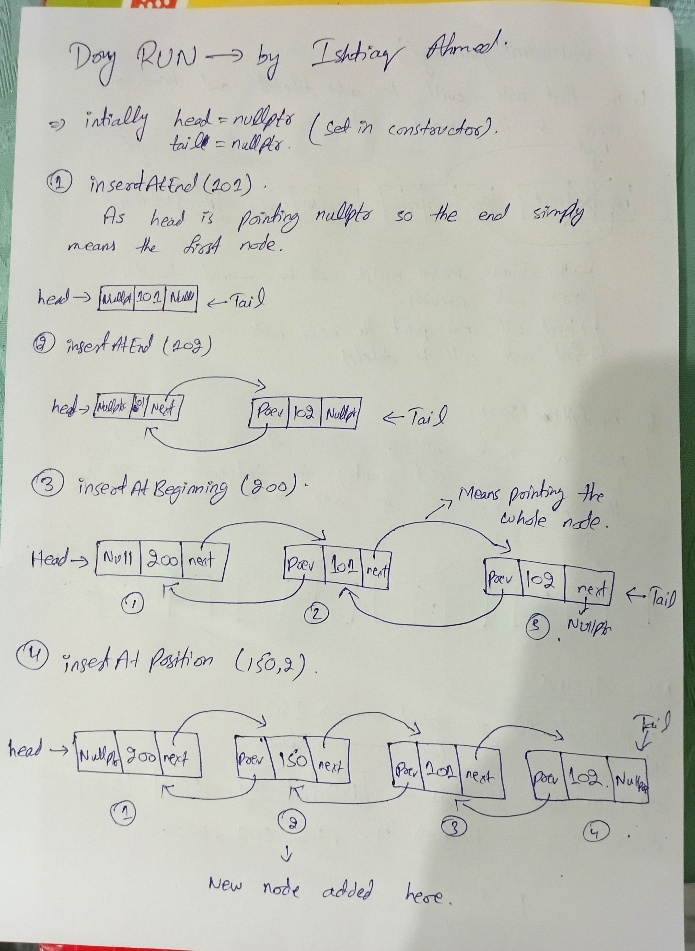 Dry RUN → by Ishtiaq Ahmed.
⇒ intially head = nullptr (set in constructor).
taill = nullptr.
① insertAtEnd (101).
As head is pointing nullptr so the end simply
means the first node.
head → Nullpt 101 Null ← Tail
② insertAtEnd (102)
hed → Nullptr 101 Next Prev 102 Nullptr ← Tail
③ insert At Beginning (200).
Means pointing the
whole node.
Head → Null 200 next Prev 101 next Prev 102 next ← Tail
① ② ③ Nullptr
④ insert At Position (150,2).
Tail
head → Nullptr 200 next Prev 150 next Prev 101 next Prev 102 Nullptr
① ② ③ ④
New node added here.